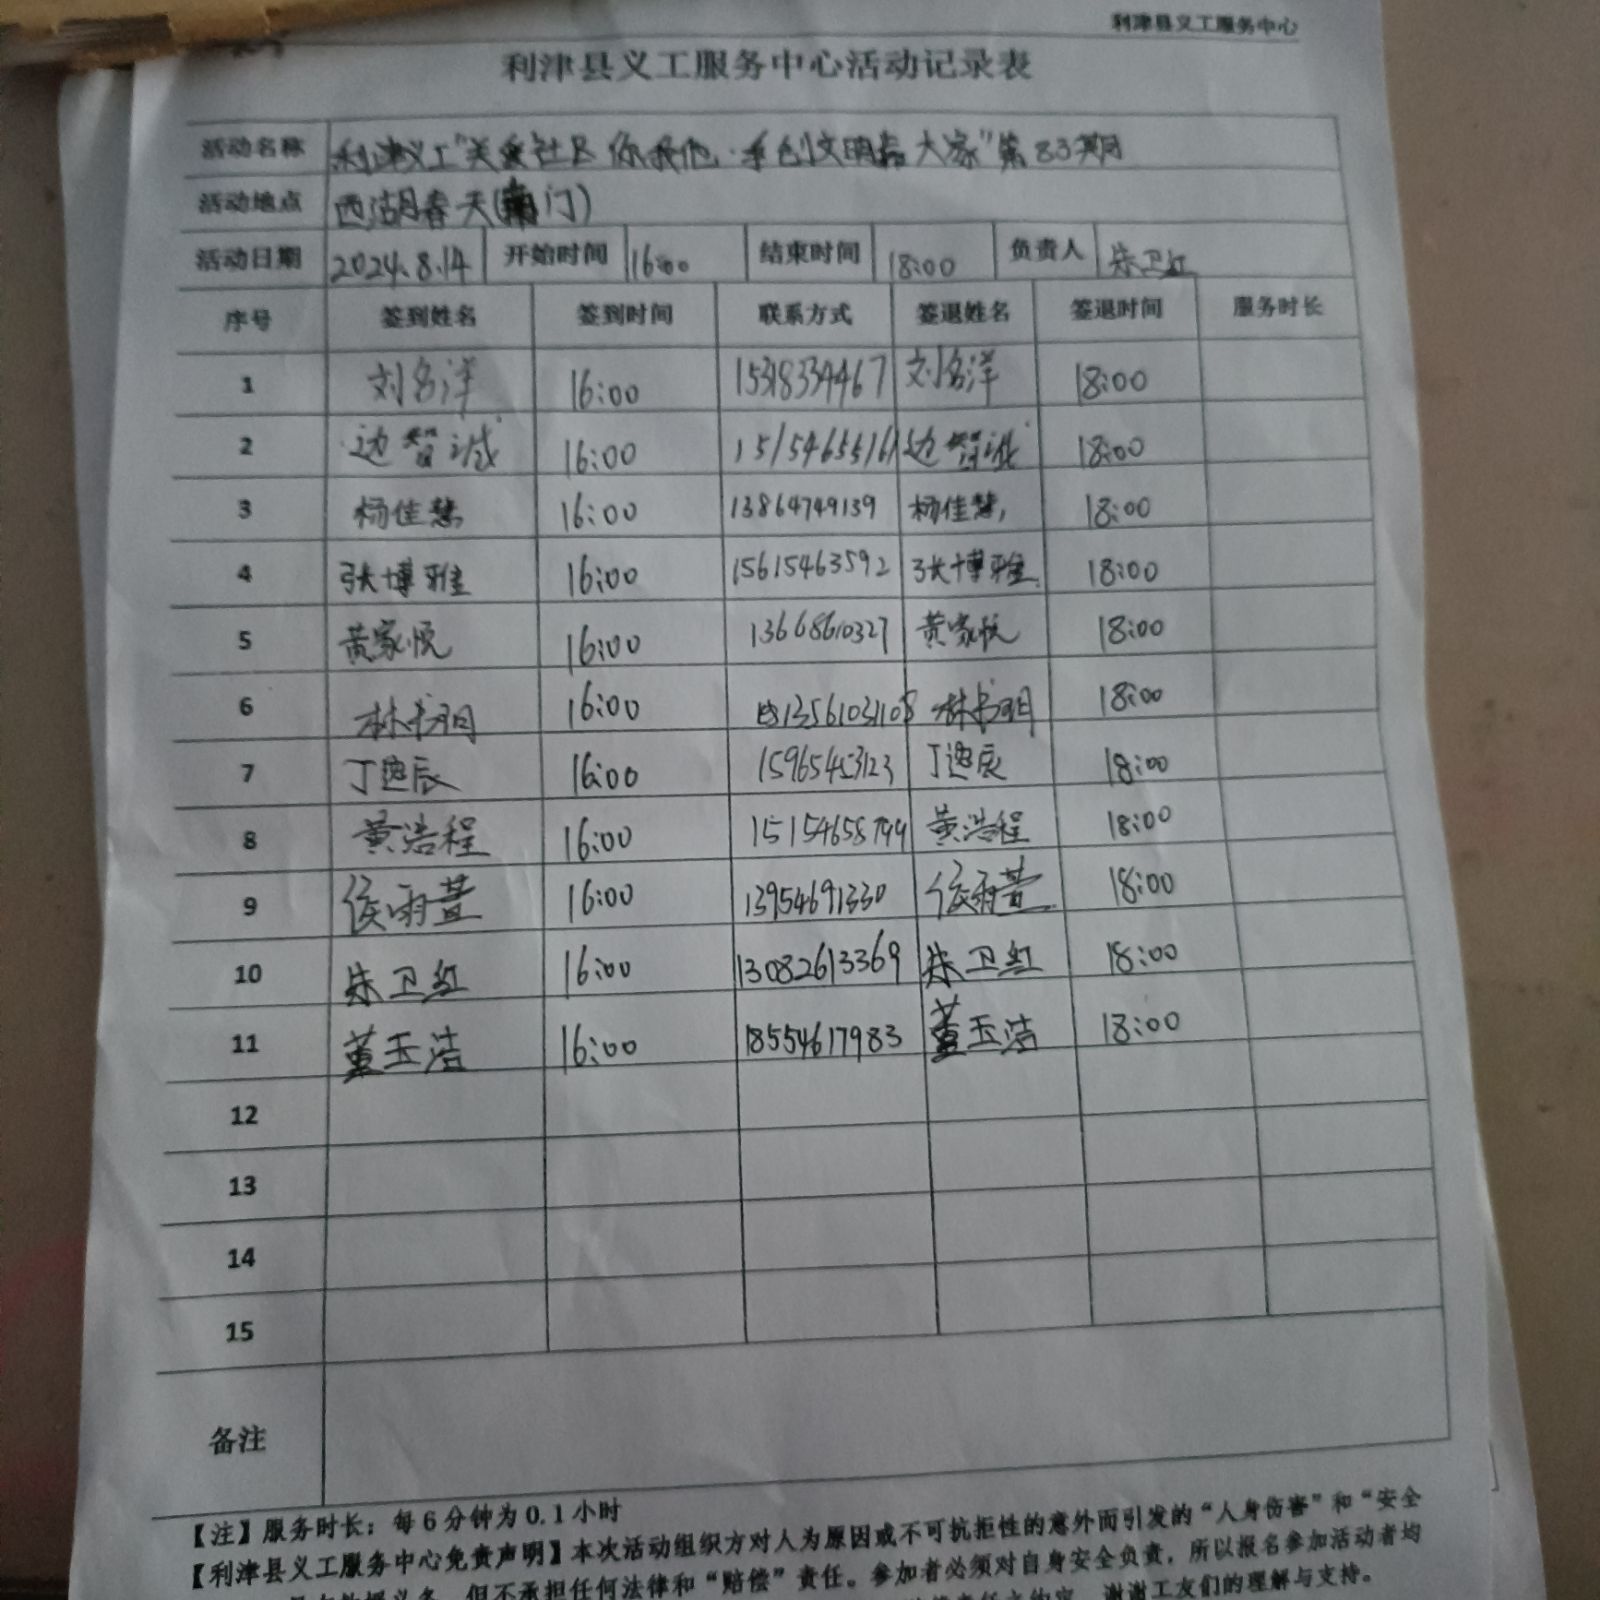 利津县义工服务中心
利津县义工服务中心活动记录表
活动名称 利津义工"关爱社区 你我他·手创文明靠大家"第83期
活动地点 西湖春天(南门)
活动日期 2024.8.14 开始时间 16:00 结束时间 18:00 负责人 朱卫红
序号 签到姓名 签到时间 联系方式 签退姓名 签退时间 服务时长
1 刘名洋 16:00 15318334467 刘名洋 18:00
2 边智诚 16:00 边智诚 18:00
3 杨佳慧 16:00 13864749139 杨佳慧 18:00
4 张博雅 16:00 15615463592 张博雅 18:00
5 黄家悦 16:00 13668610327 黄家悦 18:00
6 林书玥 16:00 13561031108 林书玥 18:00
7 丁迤辰 16:00 15965453123 丁迤辰 18:00
8 黄浩程 16:00 15154658799 黄浩程 18:00
9 侯雨萱 16:00 13954691330 侯雨萱 18:00
10 朱卫红 16:00 13082613369 朱卫红 18:00
11 董玉洁 16:00 18554617983 董玉洁 18:00
12
13
14
15
备注
【注】服务时长：每6分钟为0.1小时
【利津县义工服务中心免责声明】本次活动组织方对人为原因或不可抗拒性的意外而引发的“人身伤害”和“安全
但不承担任何法律和“赔偿”责任。参加者必须对自身安全负责，所以报名参加活动者均
谢谢工友们的理解与支持。